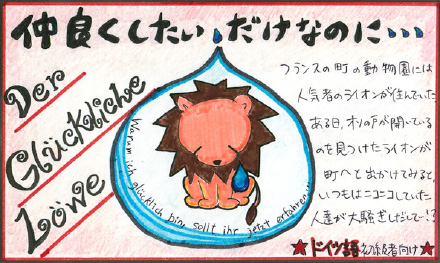 仲良くしたいだけなのに・・・
Der
Glückliche
Löwe
Warum ich glücklich bin, sollt ihr jetzt erfahren...
フランスの町の動物園には
人気者のライオンが住んでいた
ある日、オリの戸が開いている
のを見つけたライオンが
町へと出かけてみると
いつもはニコニコしていた
人達が大騒ぎしだして…!?
★ドイツ語初級者向け★